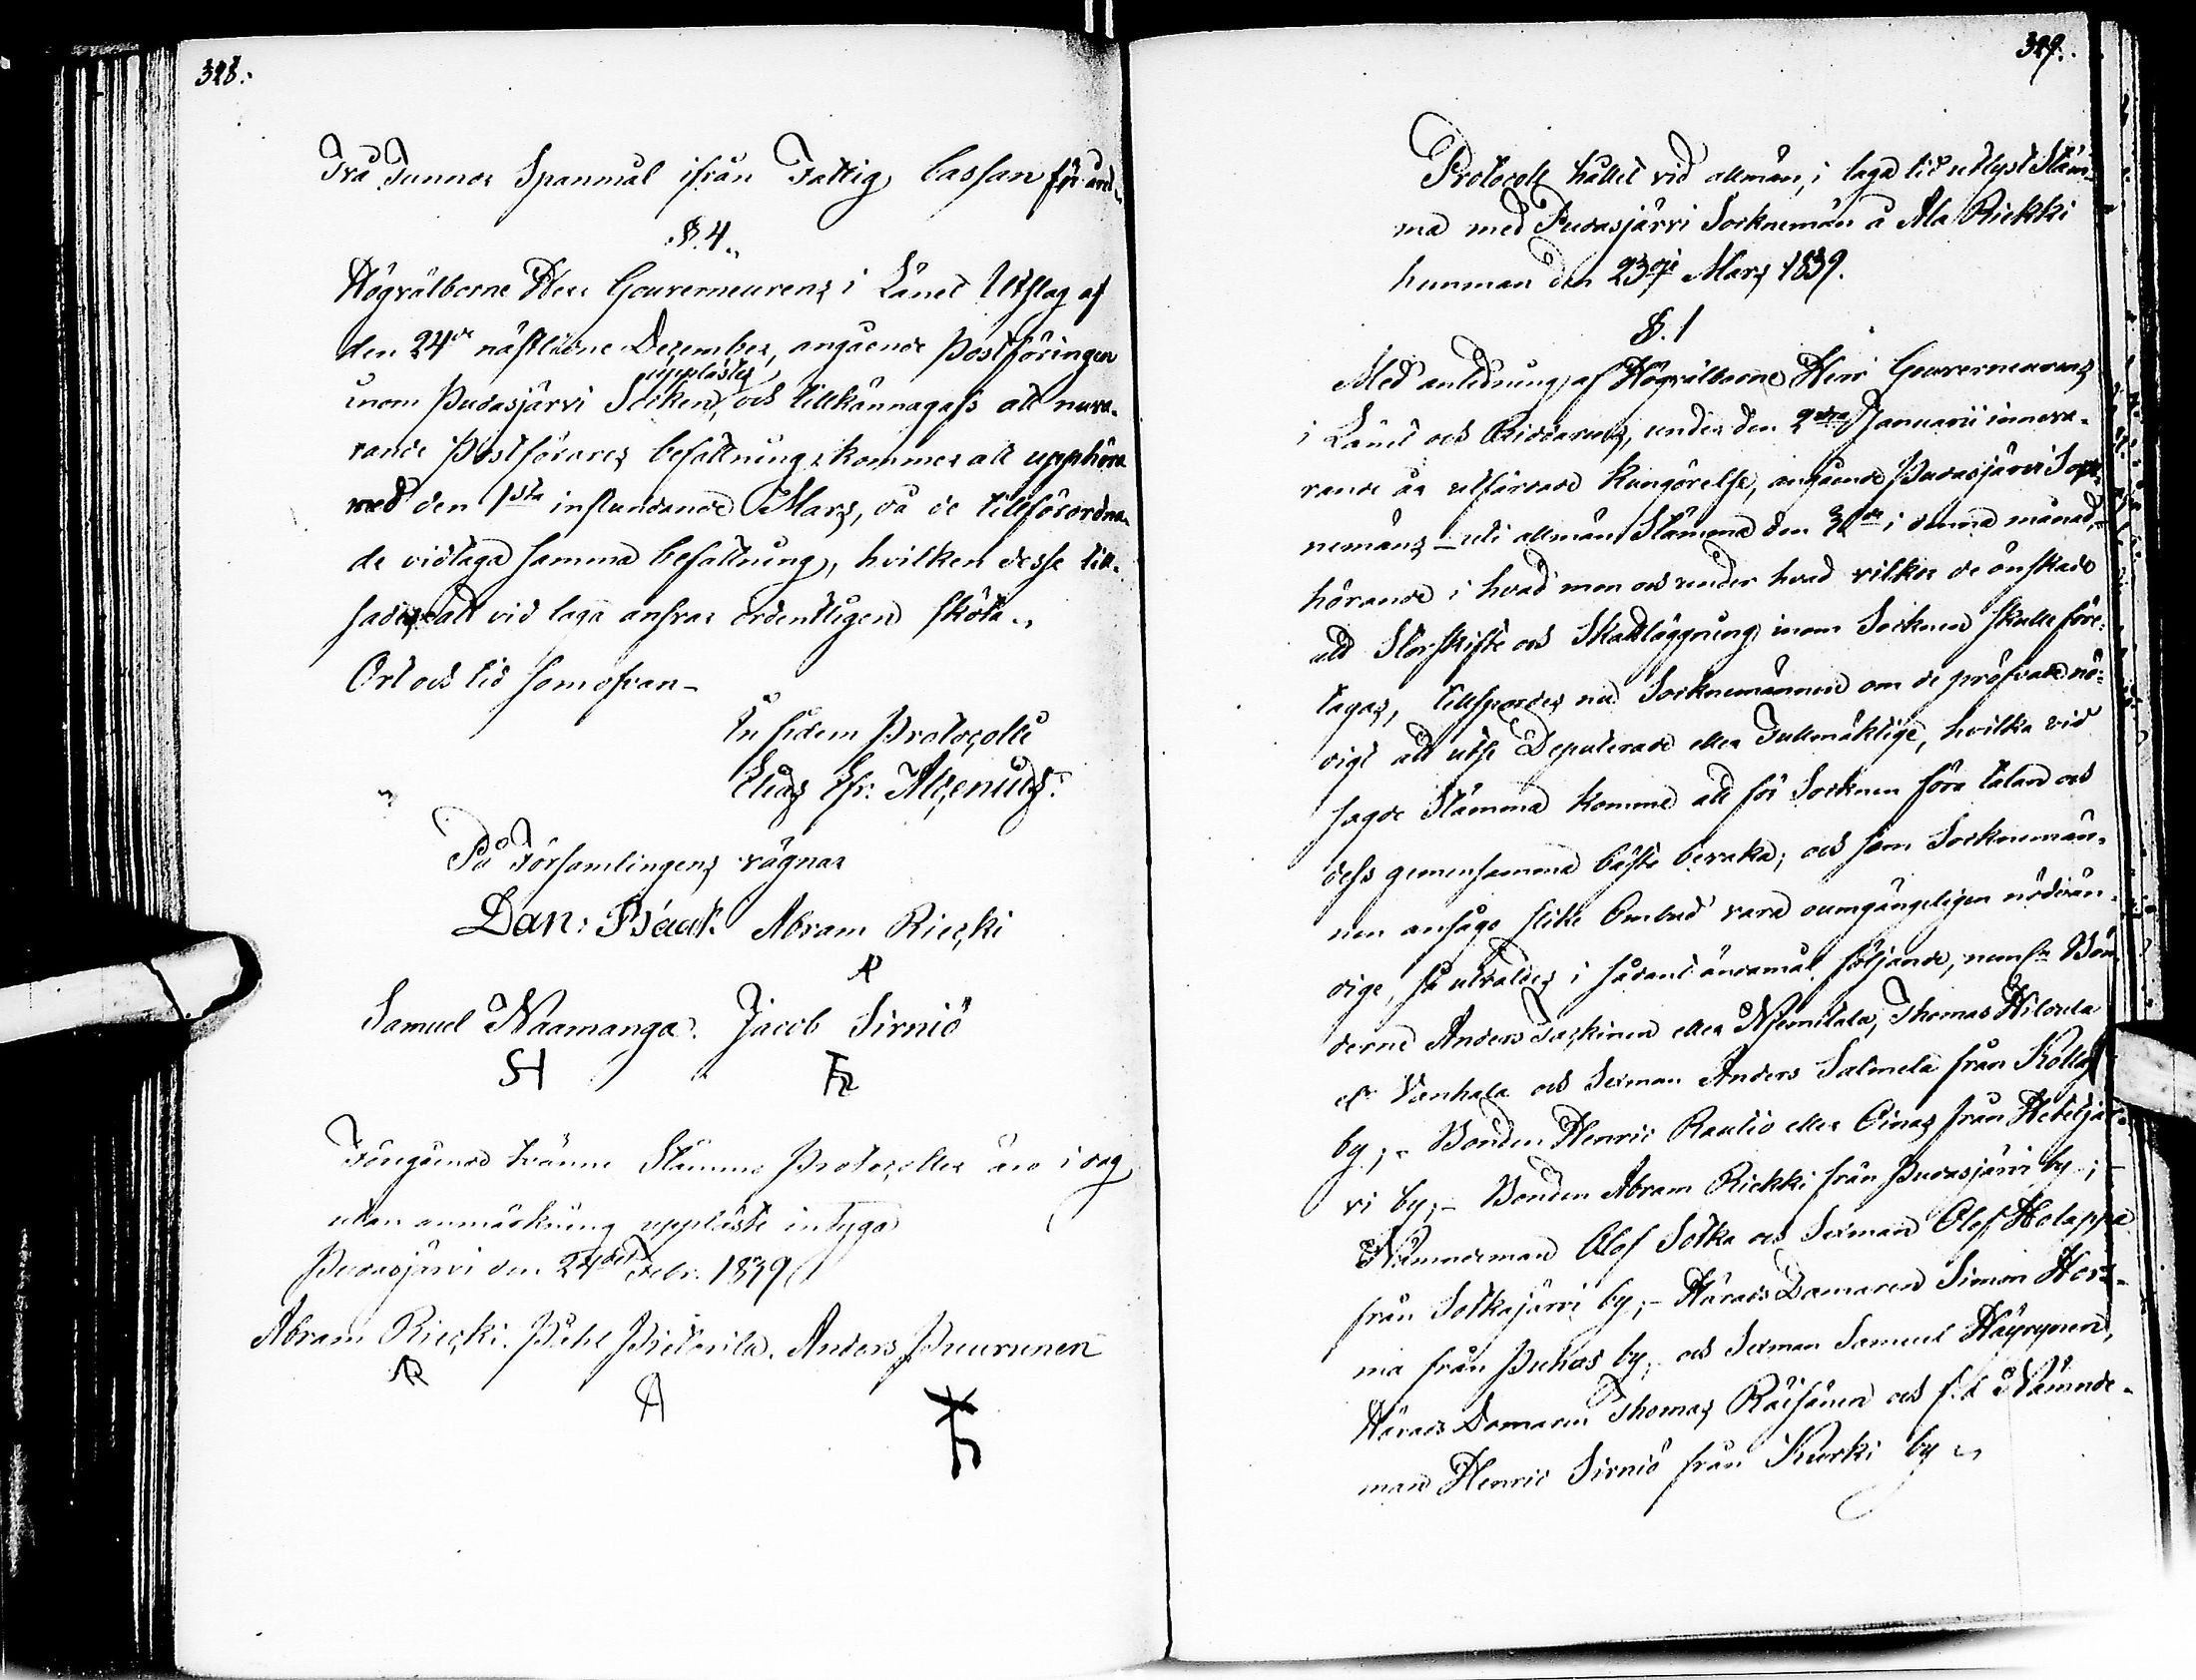 328.
Två Tunnor Spanmål ifrån Fattig Cassan
§. 4.
Högvälborne Herr Gouverneurens i Länet Utslag af
den 24de nästledne December, angående Postföringen
inom Pudasjärvi Socken, upplästes och tillkännagafs att nuva-
rande Postförares befattning kommer att upphöra
med den 1sta instundande Mars, då de tillförordna-
de vidtaga samma befattning, hvilken desse till-
sades att vid laga ansvar ordentligen sköta.
Ort och tid som ofvan-
In fidem Protocolli
Elias Efr:
På Församlingens vägnar
Dan: Bäck Abram Riecki
AR
Samuel Naamanga. Jacob Sirniö
SH
Föregående tvänne Stämmo Protocoller äro i dag
utan anmärkning uppläste intyga
Pudasjärvi den 24de Febr. 1839
Abram Riecki. Påhl Pietarila. Anders Puurunen
AR
329.
Protocoll hållet vid allmän, i laga tid utlyst Stäm-
ma med Pudasjärvi Socknemän å Ala Riekki
hemman den 23dje Mars 1839.
§. 1
Med anledning af Högvälborne Herr Gouverneurens
i Länet och Riddarens, under den 2dra Januarii inneva-
rande år utfärdade Kungörelse, angående Pudasjärvi Sock-
nemäns uti allmän Stämma den i denna månad,
hörande i hvad mon och under hvad vilkor de önskade
att Storskifte och Skattläggning inom Socknen skulle före-
tagas, tillspordes nu Socknemännen om de pröfvade nö-
digt att utse Deputerade eller Fullmäktige, hvilka vid
sagde Stämma komme att för Socknen föra talan och
dess gemensamma bästa bevaka; och som Sockneman-
nen ansågo slike Ombud vara oumgängeligen nödvän-
dige, så utvaldes i sådant ändamål följande, neml: Bön-
derne Anders Jaskinen eller Niemitalo, Thomas Hiltula
el: Vanhala och Sexman Anders Salmela från Kollaj
by; - Bonden Henric Rautio eller Oinas från Hetejär-
vi by; - Bonden Abram Riekki från Pudasjärvi by; -
Nämndeman Olof Sotka och Sexman Olof Holappa
från Sotkajärvi by; - Härads Domaren Simon Hor-
ma från Puhos by; och Sexman Samuel Häyrynen,
Härads Domaren Thomas Räisänen och f.d. Nämnde-
man Henric Sirniö från Kurki by